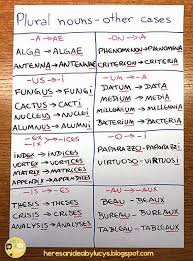 Plural nouns - other cases
-A → AE
ALGA → ALGAE
ANTENNA → ANTENNAE
-ON → A
PHENOMENON → PHENOMENA
CRITERION → CRITERIA
-US → i
FUNGUS → FUNGi
CACTUS → CACTi
NUCLEUS → NUCLEi
ALUMNUS → ALUMNi
-UM → A
DATUM → DATA
MEDIUM → MEDIA
BACTERIUM → BACTERIA
-ex -ix → ices
INDEX → INDICES
VORTEX → VORTICES
MATRIX → MATRICES
APPENDIX → APPENDICES
-O → I
PAPARAZZO → PAPARAZZI
VIRTUOSO → VIRTUOSI
-IS → ES
THESIS → THESES
CRISIS → CRISES
ANALYSIS → ANALYSES
-AU → AUX
BEAU → BEAUX
BUREAU → BUREAUX
TABLEAU → TABLEAUX
heresanideabylucys.blogspot.com